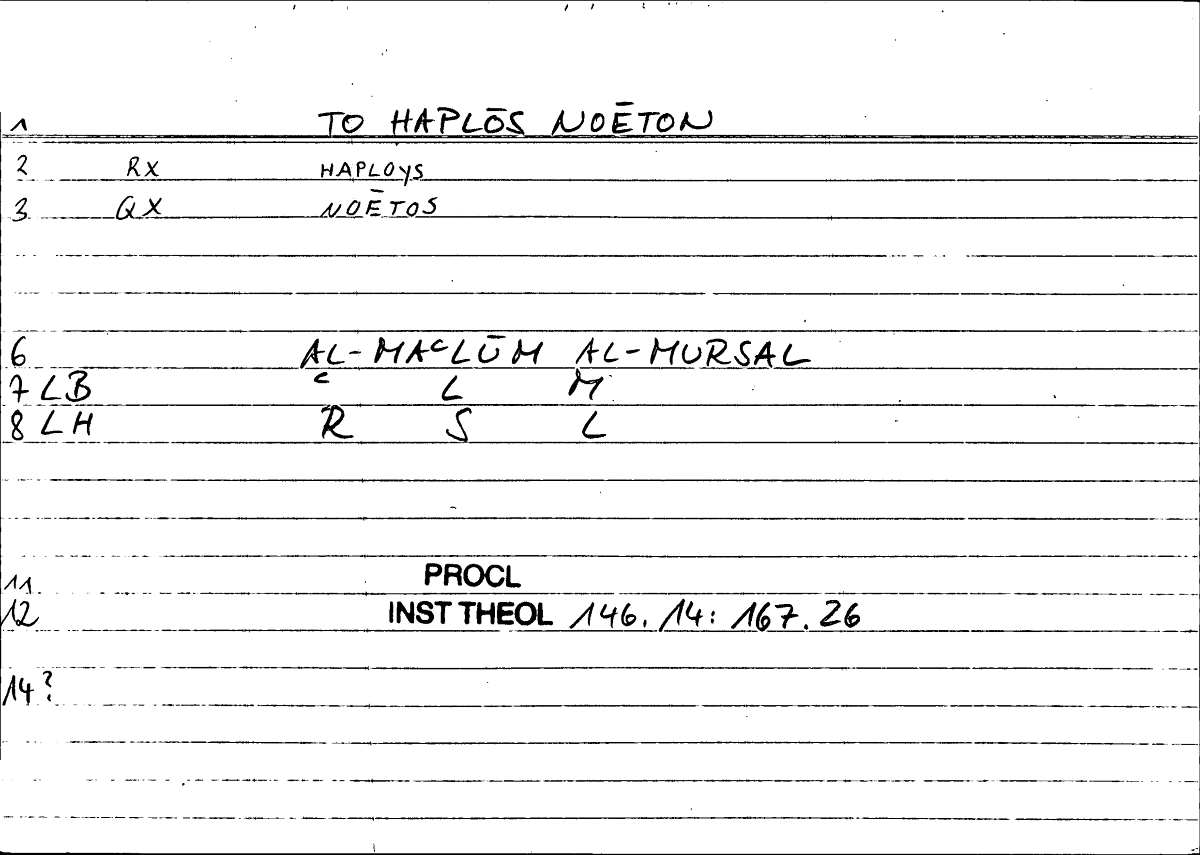 1 TO HAPLŌS NOĒTON
2 RX HAPLOYS
3 QX NOĒTOS
6 AL-MAʿLŪM AL-MURSAL
7 LB ʿ L M
8 LH R S L
11 PROCL
12 INST THEOL 146. 14: 167. 26
14?